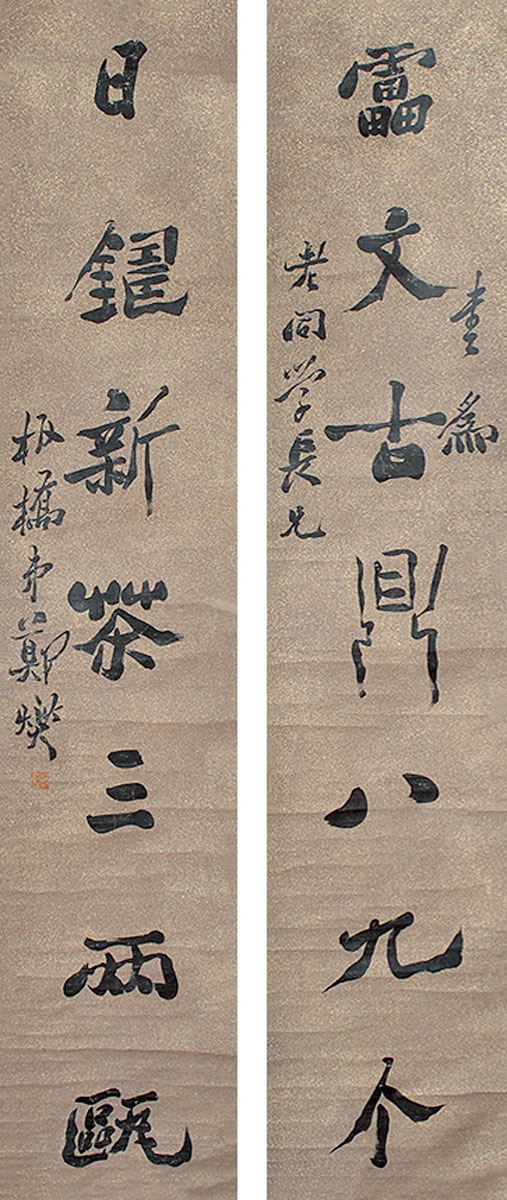 書為
靁文古鼎八九个
老同学長兄
日鑄新茶三兩甌
板橋弟鄭燮